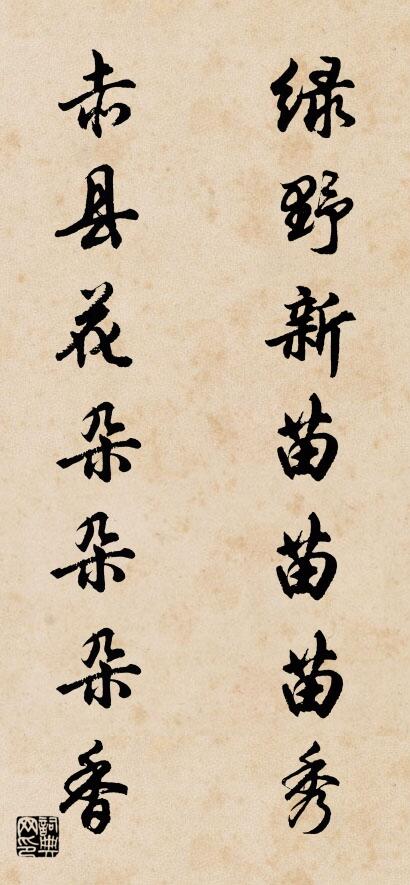 绿野新苗苗苗秀
赤县花朵朵朵香
詞典网印